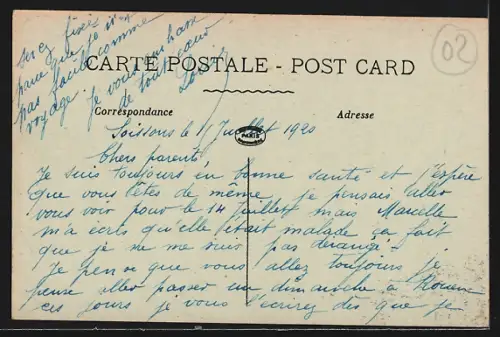 CARTE POSTALE - POST CARD
Correspondance
Adresse
Soissons le 11 Juillet 1920
Chers parents
Je suis toujours en bonne santé et j'espère
que vous l'êtes de même je pensais aller
vous voir pour le 14 Juillet mais Marcelle
m'a écrit qu'elle était malade ça fait
que je ne me suis pas dérangé
Je pense que vous allez toujours je
pense aller passer un dimanche à Rouen
ces jours je vous l'écrirez dès que je
serez fixé
parce que je
pas facile comme
voyage. Je vous
de tout cœur
PARIS
02